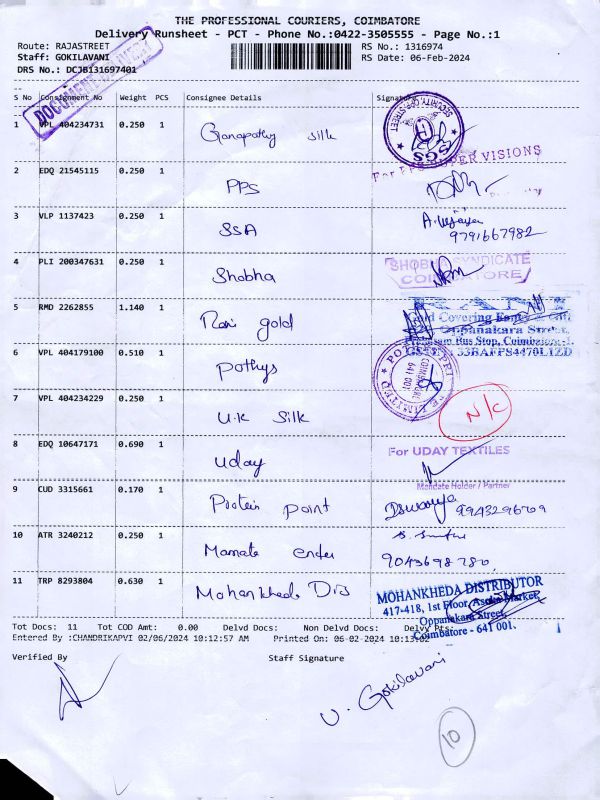 THE PROFESSIONAL COURIERS, COIMBATORE
Delivery Runsheet - PCT - Phone No.:0422-3505555 - Page No.:1
Route: RAJASTREET RS No.: 1316974
Staff: GOKILAVANI RS Date: 06-Feb-2024
DRS No.: DCJB131697401
S No Consignment No Weight PCS Consignee Details Signature
1 VPL 404234731 0.250 1 Ganapathy silk
SGS
2 EDQ 21545115 0.250 1 PPS
3 VLP 1137423 0.250 1 SSA A. Vijaya
9791667982
4 PLI 200347631 0.250 1 Shobha SHOBHA SYNDICATE
COIMBATORE
5 RMD 2262855 1.140 1 Rani gold
Gold Covering
Oppanakara Street,
Bus Stop, Coimbatore-1.
33BAFPS4470L1ZD
6 VPL 404179100 0.510 1 Pothys
7 VPL 404234229 0.250 1 U.K Silk N/C
8 EDQ 10647171 0.690 1 Uday For UDAY TEXTILES
Mandate Holder / Partner
9 CUD 3315661 0.170 1 Protein point 9943296709
10 ATR 3240212 0.250 1
9043698780
11 TRP 8293804 0.630 1 Mohankheda Dis MOHANKHEDA DISTRIBUTOR
417-418, 1st Floor, Asoka Market,
Oppanakara Street,
Coimbatore - 641 001.
Tot Docs: 11 Tot COD Amt: 0.00 Delvd Docs: Non Delvd Docs: Delvy Pts:
Entered By :CHANDRIKAPVI 02/06/2024 10:12:57 AM Printed On: 06-02-2024 10:13:02
Verified By Staff Signature
V. Gokilavani
10